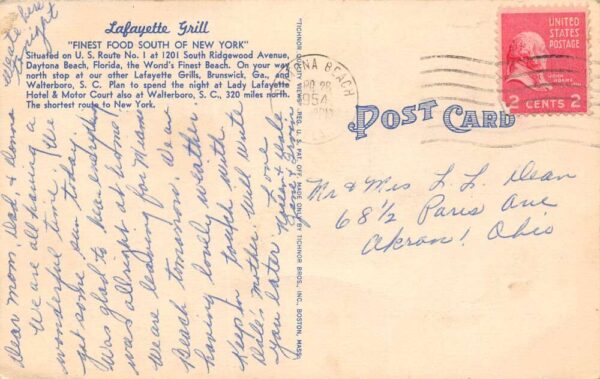 We ate here
tonight
Lafayette Grill
"FINEST FOOD SOUTH OF NEW YORK"
Situated on U. S. Route No. 1 at 1201 South Ridgewood Avenue,
Daytona Beach, Florida, the World's Finest Beach. On your way
north stop at our other Lafayette Grills, Brunswick, Ga., and
Walterboro, S. C. Plan to spend the night at Lady Lafayette
Hotel & Motor Court also at Walterboro, S. C., 320 miles north.
The shortest route to New York.
Dear Mom, Dad, & Donna
We are all having a
wonderful time. We
got some sun today.
Was glad to hear everything
was allright at home.
We are leaving for Miami
Beach tomorrow. We are
having lovely weather
Keep in touch with
Dale's mother. Will write
you later Love
Helen & Dale
TICHNOR QUALITY VIEWS, REG. U. S. PAT. OFF. MADE ONLY BY TICHNOR BROS., INC., BOSTON, MASS.
BEACH
1954
POST CARD
UNITED STATES
POSTAGE
JOHN ADAMS
2 CENTS 2
Mr & Mrs L. L. Dean
68½ Paris Ave
Akron, Ohio